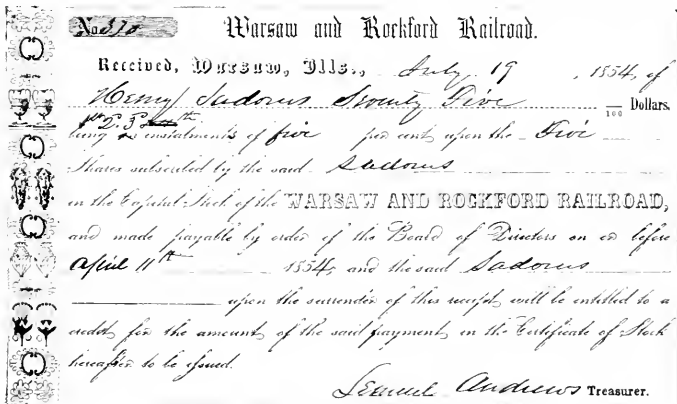 No 370 Warsaw and Rockford Railroad.
Received, Warsaw, Ills., July 19, 1854, of
Henry Sadorus Seventy Five /100 Dollars,
being instalments of five per cent upon the Five
Shares subscribed by the said Sadorus
in the Capital Stock of the WARSAW AND ROCKFORD RAILROAD,
and made payable by order of the Board of Directors on or before
April 11th 1854, and the said Sadorus
upon the surrender of this receipt, will be entitled to a
credit, for the amount of the said payment, in the Certificate of Stock
hereafter to be issued.
Lemuel Andrews Treasurer.